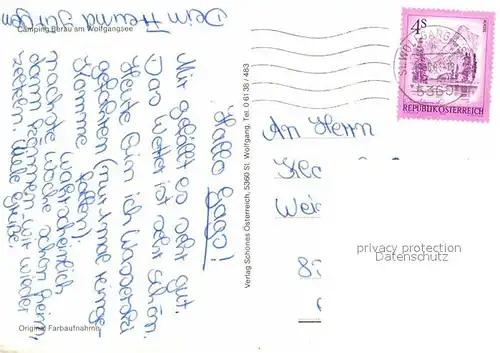 Camping Berau am Wolfgangsee
Hallo Gago!
Mir gefällt es sehr gut.
Das Wetter ist sehr schön.
Heute bin ich Wasserski
gefahren (nur 1 mal runge-
fallen)
Komme warscheinlich
nächste Woche schon heim,
dann können wir wieder
zocken. Viele Grüße
Dein Freund Jürgen
Original Farbaufnahme
Verlag Schönes Österreich, 5360 St. Wolfgang, Tel. 0 61 38 / 483
4S
REPUBLIK ÖSTERREICH
ST. WOLFGANG
5360
An Herrn
Wei
privacy protection
Datenschutz